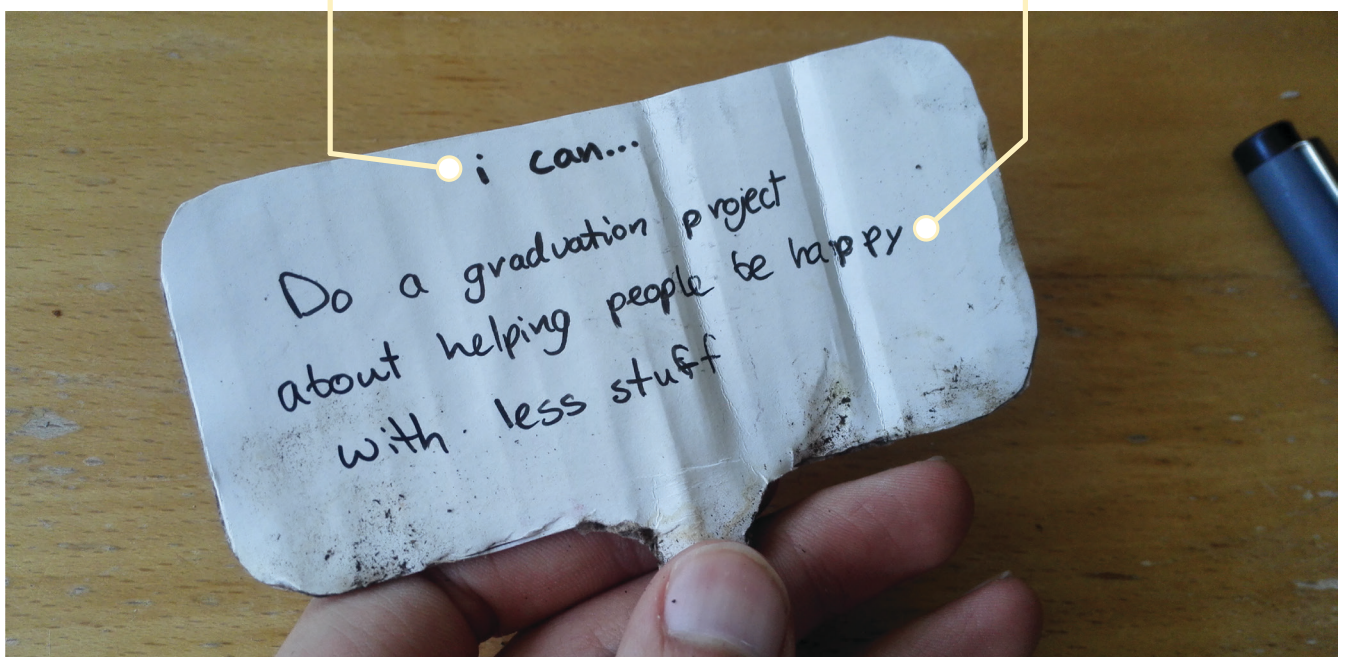 i can...
Do a graduation project
about helping people be happy
with less stuff